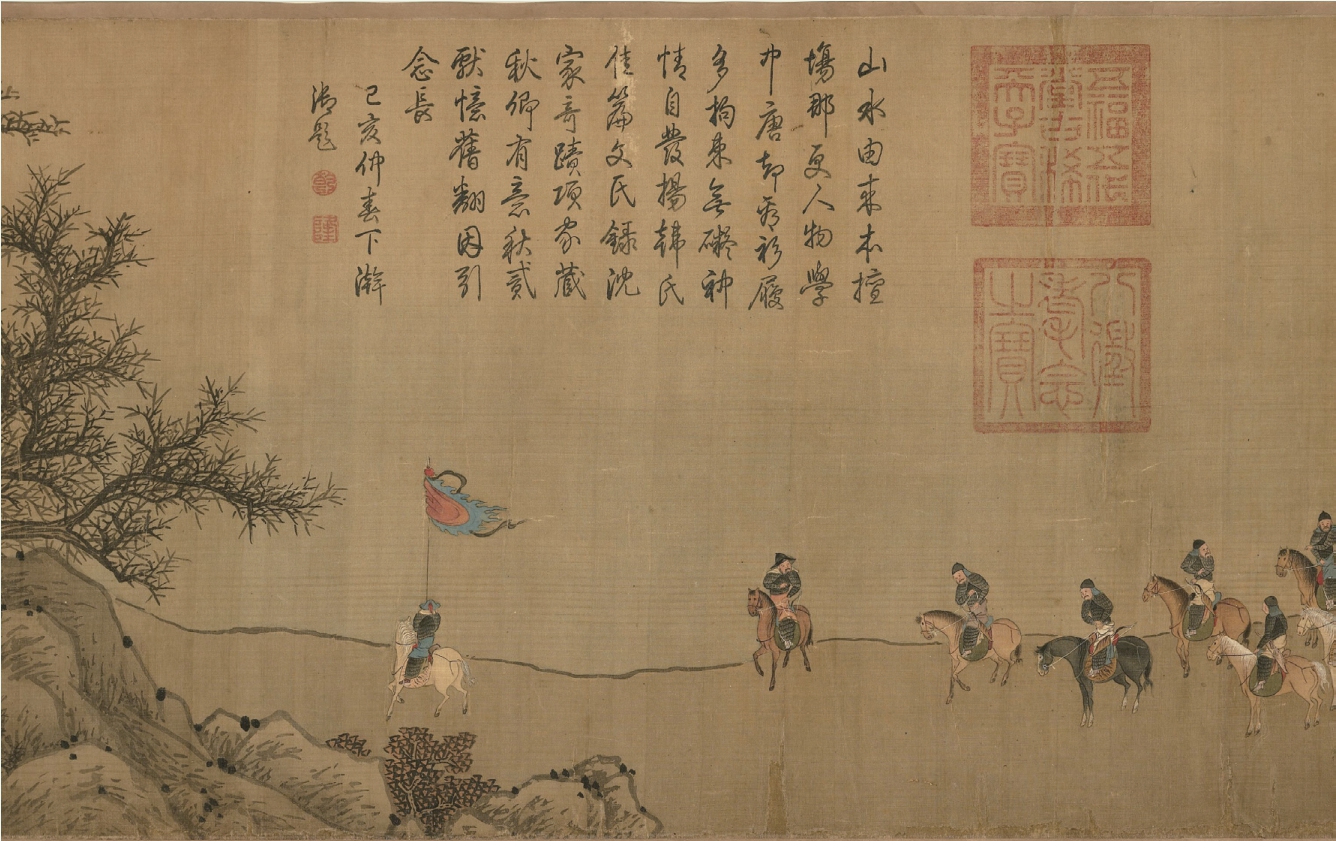 五福五代
堂古稀
天子寶
八徵
耄念
之寶
山水由來本擅
塲那更人物學
中唐却看衫履
多拘束無礙神
情自發揚韓氏
佳篇文氏錄沈
家奇蹟項家藏
秋卿有意秋貳
獻憶舊翻因引
念長
己亥仲春下澣
御題
乾
隆